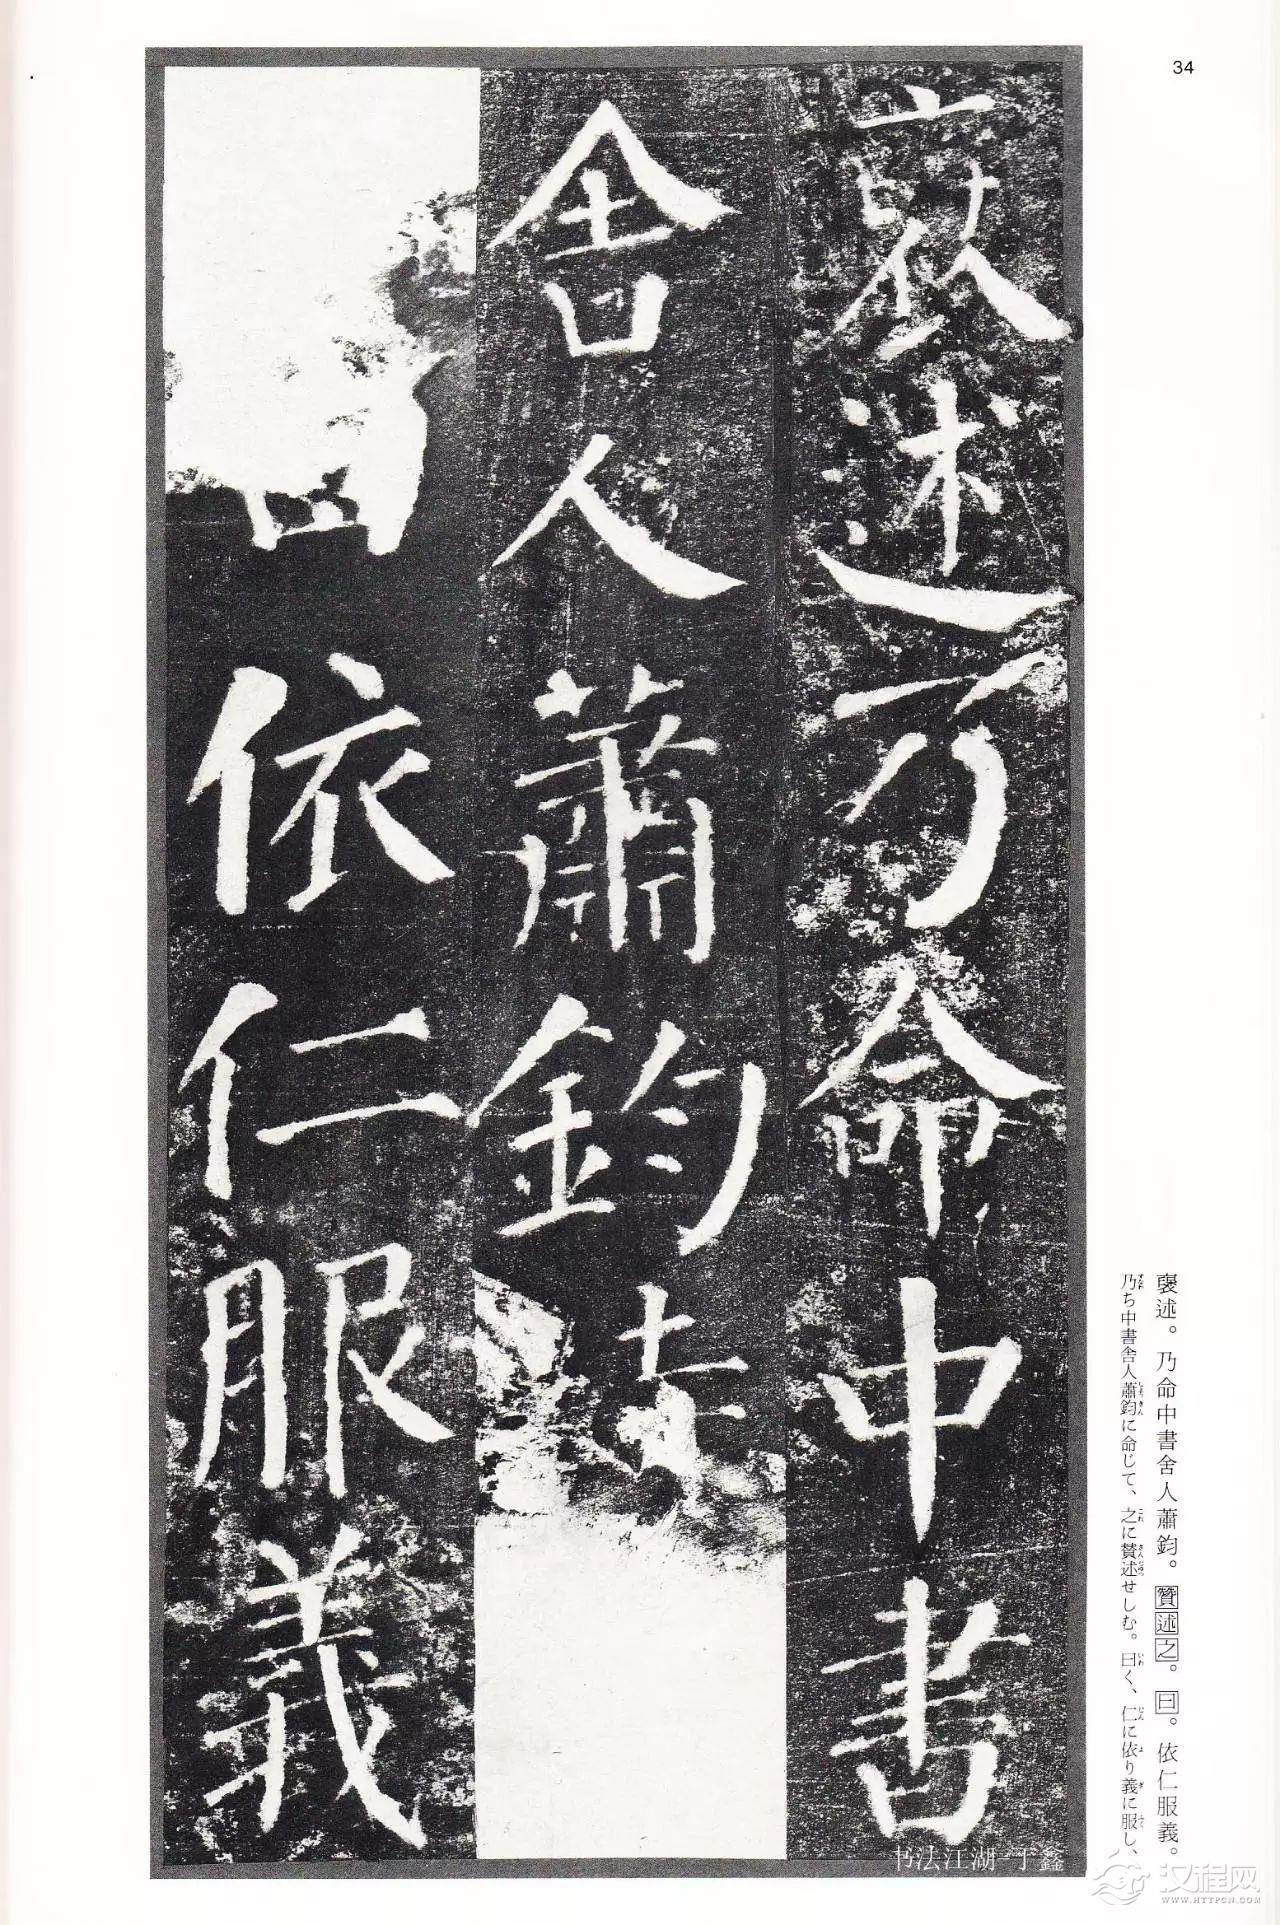 34
褒述乃命中書
舍人蕭鈞
曰依仁服義
褒述。乃命中書舍人蕭鈞。贊述之。曰。依仁服義。
乃ち中書舎人蕭鈞に命じて、之に賛述せしむ。曰く、仁に依り義に服し、
书法江湖-丁鑫
汉程网
WWW.HTTPCN.COM